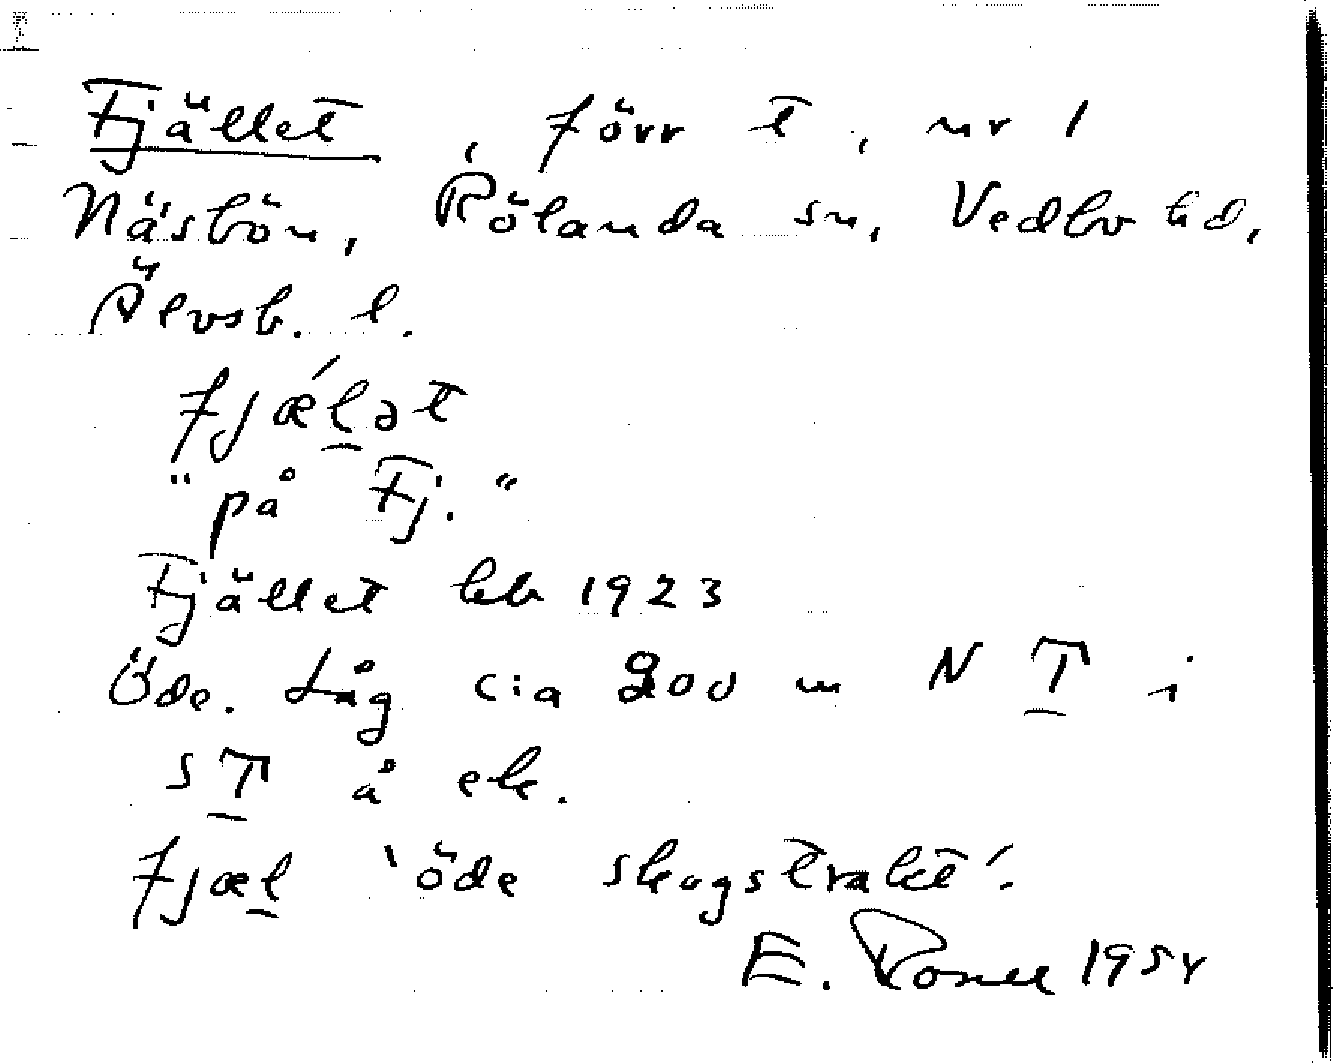 Fjället, förr t, nr 1
Näsbön, Rölanda sn, Vedbo hd,
Älvsb. l.
fjǽl̠ət
"på Fj."
Fjället kb 1923
Öde. Låg c:a 200 m N T̠ i
S T̠ å ek.
fjæl̠ 'öde skogstrakt'.
E. 1954